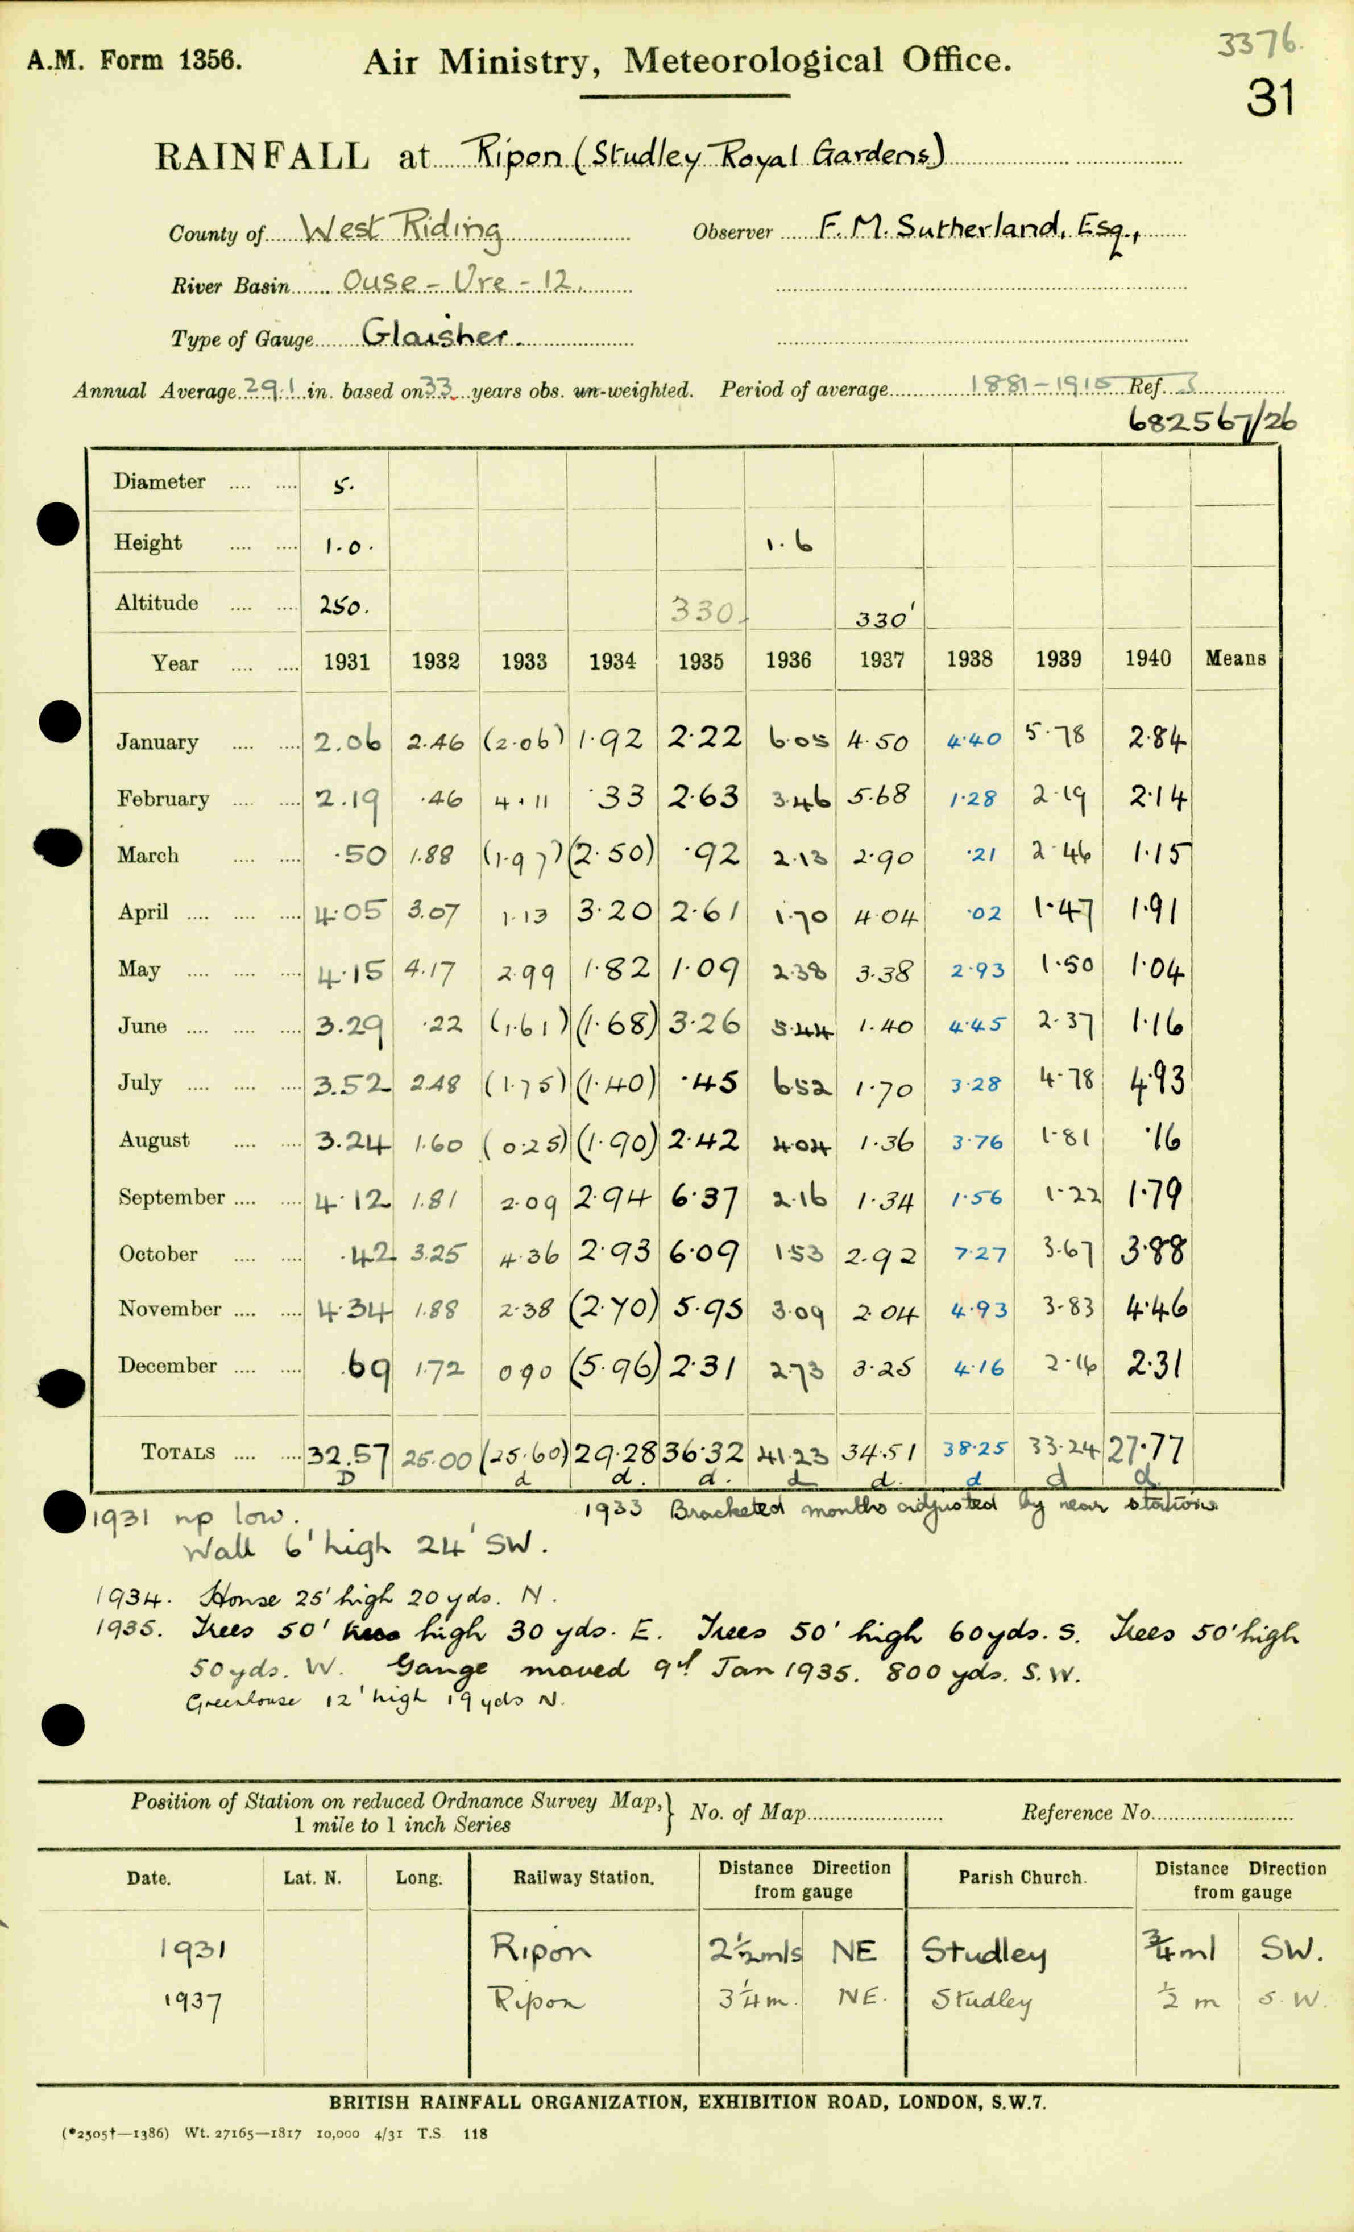 3376.
A.M. Form 1356. Air Ministry, Meteorological Office.
31
RAINFALL at Ripon (Studley Royal Gardens)
County of West Riding Observer F. M. Sutherland, Esq.,
River Basin Ouse - Ure - 12.
Type of Gauge Glaisher.
Annual Average 29.1 in. based on 33 years obs. un-weighted. Period of average 1881-1915 Ref. S
682567/26
Diameter 5.
Height 1.0. 1.6
Altitude 250. 330. 330'
Year 1931 1932 1933 1934 1935 1936 1937 1938 1939 1940 Means
January 2.06 2.46 (2.06) 1.92 2.22 6.05 4.50 4.40 5.78 2.84
February 2.19 .46 4.11 .33 2.63 3.46 5.68 1.28 2.19 2.14
March .50 1.88 (1.97) (2.50) .92 2.13 2.90 .21 2.46 1.15
April 4.05 3.07 1.13 3.20 2.61 1.70 4.04 .02 1.47 1.91
May 4.15 4.17 2.99 1.82 1.09 2.38 3.38 2.93 1.50 1.04
June 3.29 .22 (1.61) (1.68) 3.26 5.44 1.40 4.45 2.37 1.16
July 3.52 2.48 (1.75) (1.40) .45 6.52 1.70 3.28 4.78 4.93
August 3.24 1.60 (0.25) (1.90) 2.42 4.04 1.36 3.76 1.81 .16
September 4.12 1.81 2.09 2.94 6.37 2.16 1.34 1.56 1.22 1.79
October .42 3.25 4.36 2.93 6.09 1.53 2.92 7.27 3.67 3.88
November 4.34 1.88 2.38 (2.70) 5.95 3.09 2.04 4.93 3.83 4.46
December .69 1.72 0.90 (5.96) 2.31 2.73 3.25 4.16 2.16 2.31
TOTALS 32.57 25.00 (25.60) 29.28 36.32 41.23 34.51 38.25 33.24 27.77
D d d. d. d d. d d d
1931 np low. 1933 Bracketed months adjusted by near stations
Wall 6' high 24' SW.
1934. House 25' high 20 yds. N.
1935. Trees 50' high 30 yds. E. Trees 50' high 60 yds. S. Trees 50' high
50 yds. W. Gauge moved 9th Jan 1935. 800 yds. S.W.
Greenhouse 12' high 19 yds N.
Position of Station on reduced Ordnance Survey Map, } No. of Map Reference No.
1 mile to 1 inch Series
Date. Lat. N. Long. Railway Station. Distance Direction from gauge Parish Church. Distance Direction from gauge
1931 Ripon 2½mls NE Studley ¾ml SW.
1937 Ripon 3¼m. NE. Studley ½ m S.W.
BRITISH RAINFALL ORGANIZATION, EXHIBITION ROAD, LONDON, S.W.7.
(*2505†—1386) Wt. 27165—1817 10,000 4/31 T.S. 118